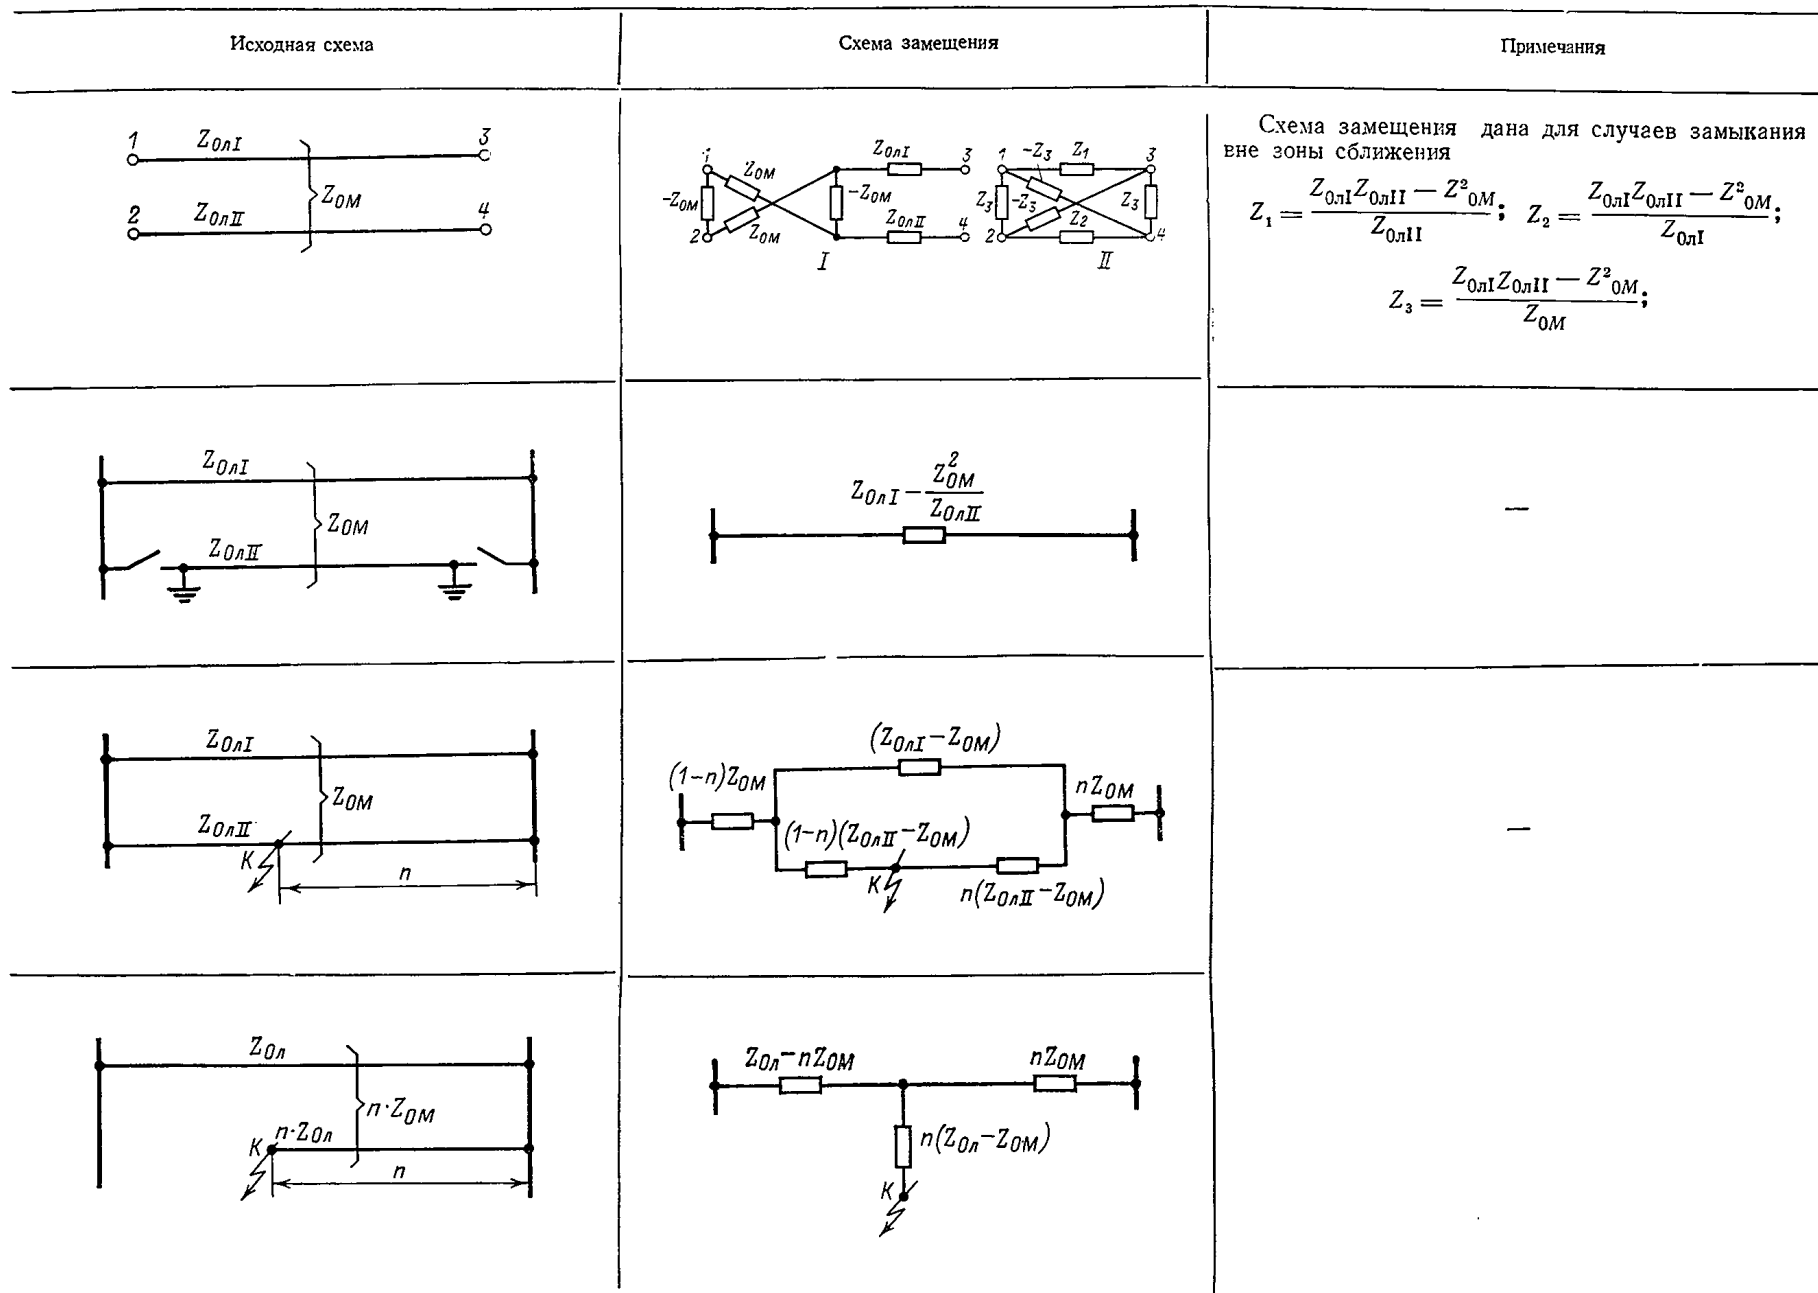 Исходная схема
Схема замещения
Примечания
1 Z₀лI 3
Z₀М
2 Z₀лII 4
1 Z₀М Z₀лI 3
-Z₀М -Z₀М
2 Z₀М Z₀лII 4
I
1 -Z₃ Z₁ 3
Z₃ -Z₃ Z₃
2 Z₂ 4
II
Схема замещения дана для случаев замыкания
вне зоны сближения
Z₁ = (Z₀лI Z₀лII — Z²₀М) / Z₀лII; Z₂ = (Z₀лI Z₀лII — Z²₀М) / Z₀лI;
Z₃ = (Z₀лI Z₀лII — Z²₀М) / Z₀М;
Z₀лI
Z₀М
Z₀лII
Z₀лI - Z²₀М / Z₀лII
—
Z₀лI
Z₀М
Z₀лII
K
n
(Z₀лI - Z₀М)
(1-n)Z₀М
nZ₀М
(1-n)(Z₀лII - Z₀М)
K
n(Z₀лII - Z₀М)
—
Z₀л
n·Z₀М
K n·Z₀л
n
Z₀л - nZ₀М nZ₀М
n(Z₀л - Z₀М)
K